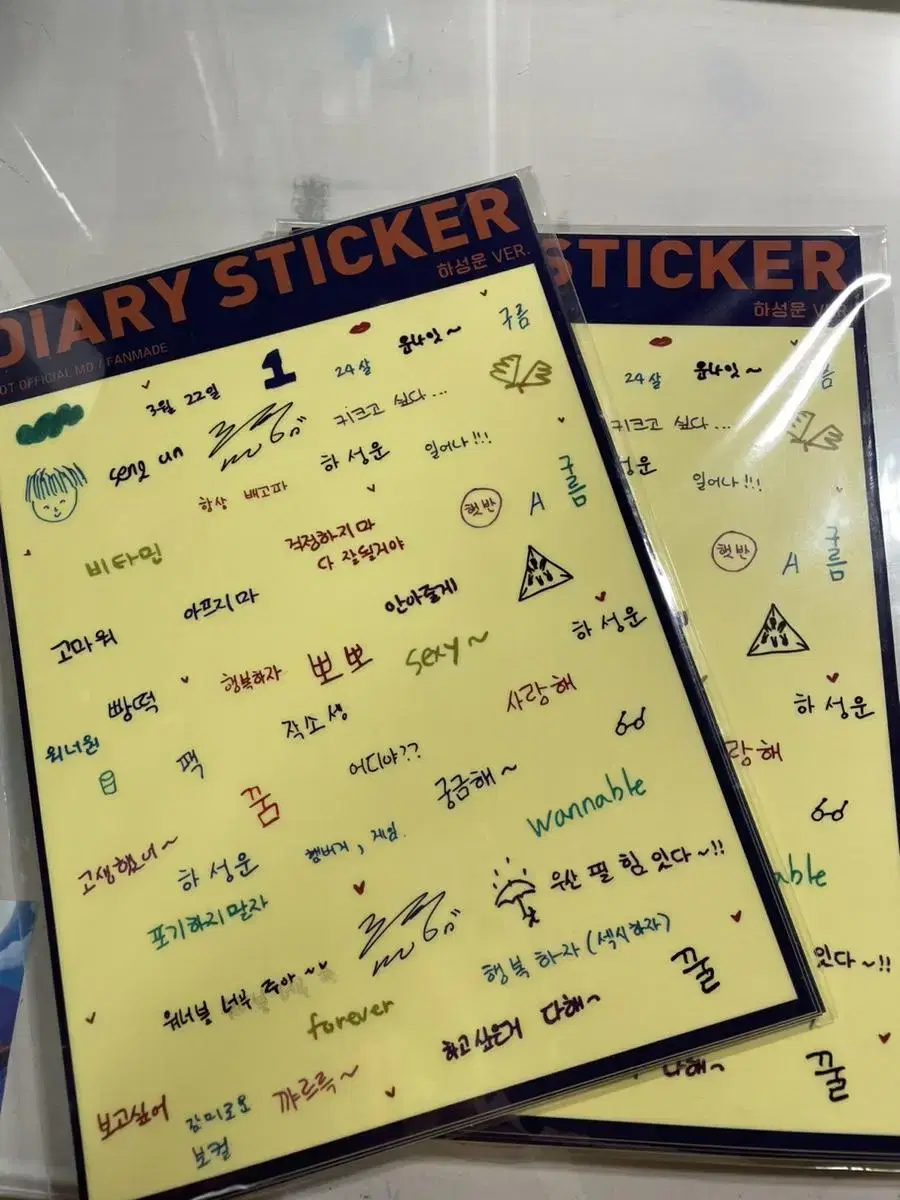 DIARY STICKER
하성운 VER.
OT OFFICIAL MD / FANMADE
3월 22일
1
24살
윤나잇~
구름
seng un
키크고 싶다...
하성운
일어나!!!
항상 배고파
햇반
A
구름
비타민
걱정하지마
다 잘될거야
고마워
아프지마
안아줄게
하성운
빵떡
행복하자
뽀뽀
sexy~
사랑해
워너원
팩
작소성
어디야??
궁금해~
꿈
고생했너~
하성운
햄버거, 제임.
wannable
포기하지말자
우산 필 힘 있다~!!
워너블 너무 좋아~
forever
행복하자(섹시하자)
꿀
하고싶은거 다해~
보고싶어
감미로운
보컬
꺄르륵~
STICKER
하성운 VER.
24살
윤나잇~
름
키크고 싶다...
성운
일어나!!!
햇반
A
구름
하성운
랑해
able
있다~!!
다해~
꿀